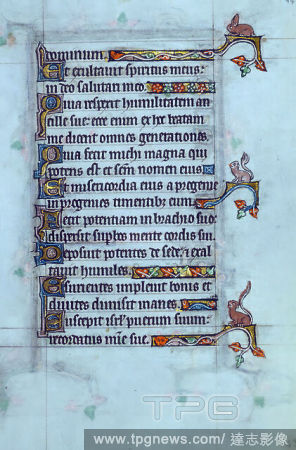 dominum.
Et exultavit spiritus meus:
in deo salutari meo.
Quia respexit humilitatem an
cille sue: ecce enim ex hoc beatam
me dicent omnes generationes.
Quia fecit michi magna qui
potens est et scm nomen eius
Et misericordia eius a progenie
in progenies timentibus eum
Fecit potentiam in brachio suo:
dispersit supbos mente cordis sui
Deposuit potentes de sede: et exal
tavit humiles.
Esurientes implevit bonis et
divites dimisit inanes.
Suscepit isrl puerum suum:
recordatus mie sue.
TPG
www.tpgnews.com/ 達志影像